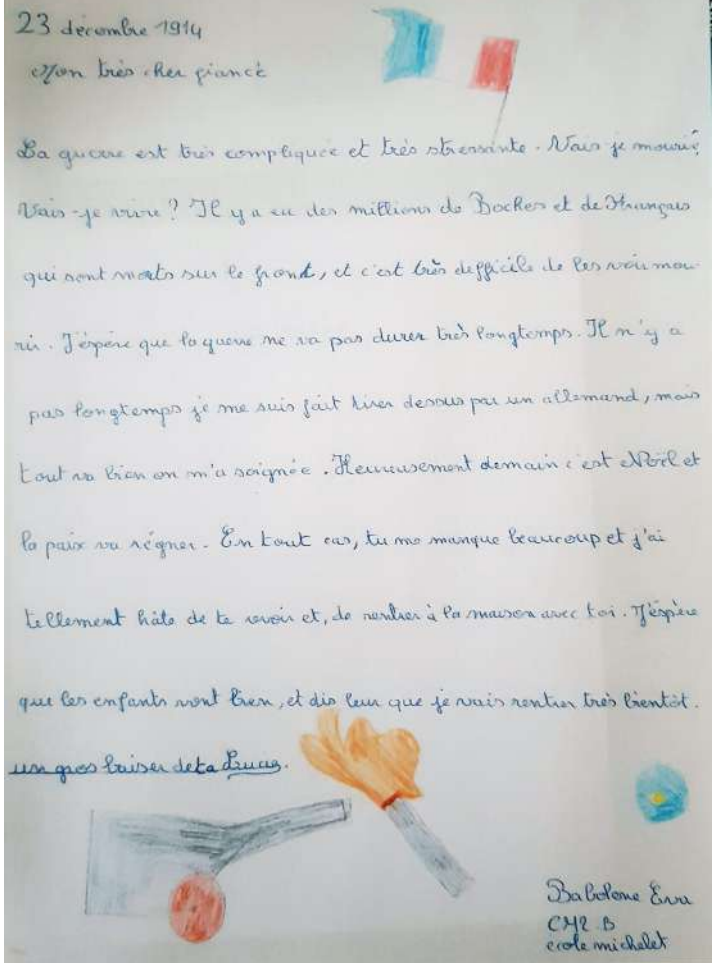 23 décembre 1914
Mon très cher fiancé
La guerre est très compliquée et très stressante. Vais je mourir?
Vais-je vivre ? Il y a eu des millions de Boches et de Français
qui sont morts sur le front, et c'est très difficile de les voir mou-
rir. J'éspère que la guerre ne va pas durer très longtemps. Il n'y a
pas longtemps je me suis fait tirer dessus par un allemand, mais
tout va bien on m'a soignée. Heureusement demain c'est Noël et
la paix va régner. En tout cas, tu me manque beaucoup et j'ai
tellement hâte de te revoir et, de rentrer à la maison avec toi. J'éspère
que les enfants vont bien, et dis leur que je vais rentrer très bientôt.
un gros baiser de ta
Eva
CM2 B
ecole michelet